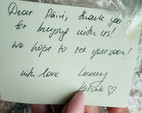 Dear Dani, thank you
for buying with us!
We hope to see you soon!
with love